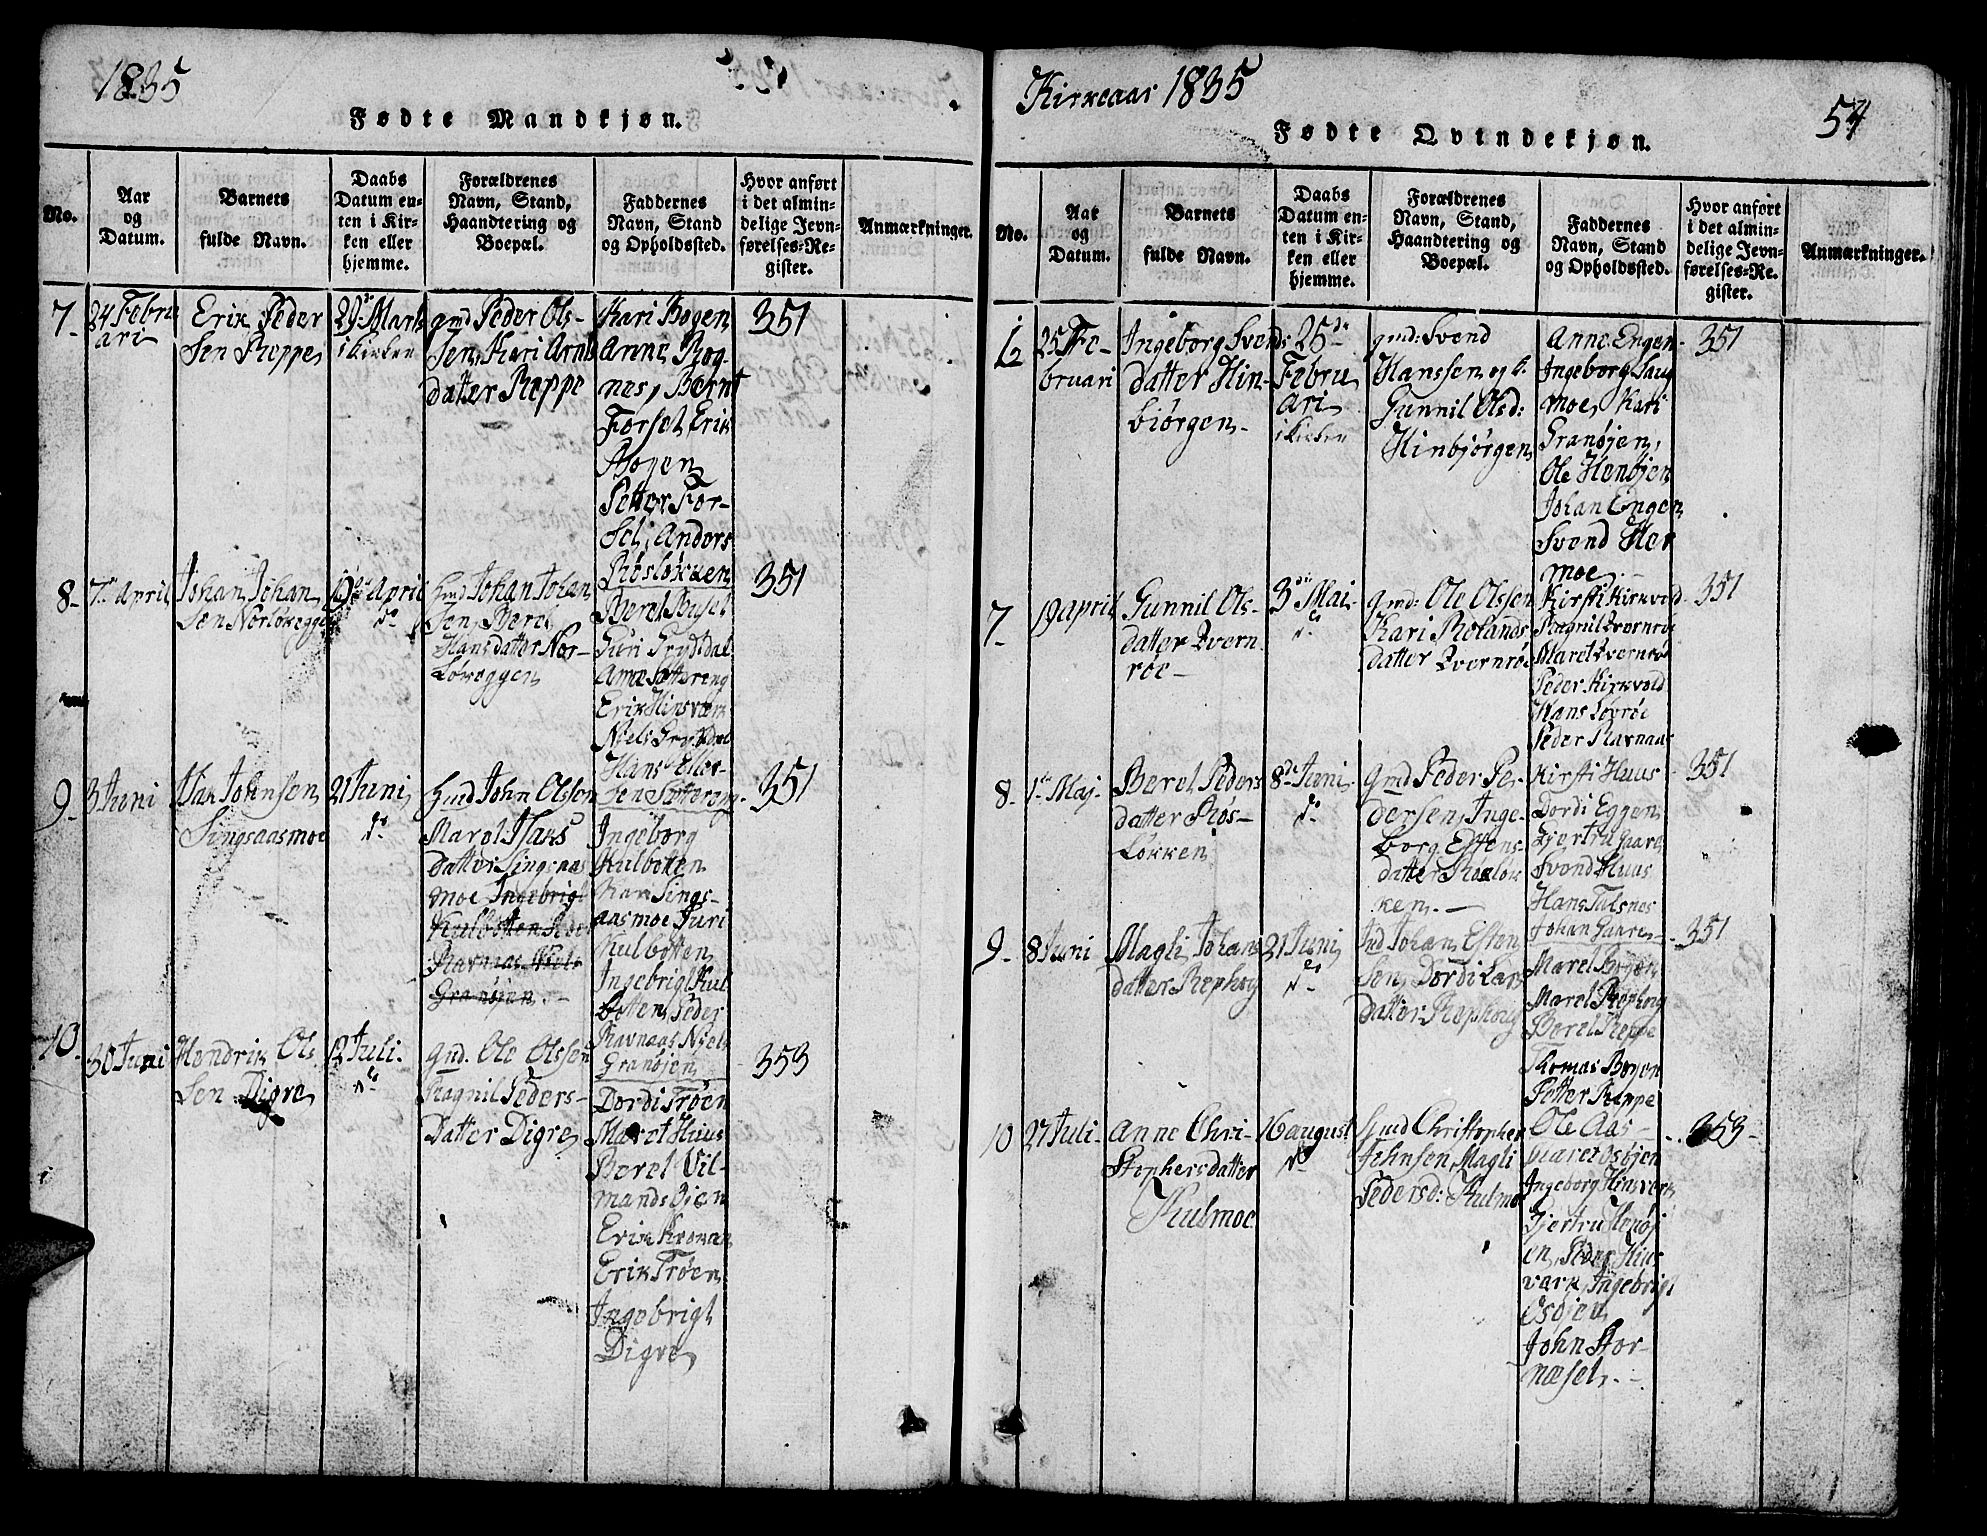 1835
Fødte Mandkjøn.
No.
Aar
og
Datum.
Barnets
fulde Navn.
Daabs
Datum en-
ten i Kir-
ken eller
hjemme.
Forældrenes
Navn, Stand,
Haandtering og
Boepæl.
Faddernes
Navn, Stand
og Opholdssted.
Hvor anført
i det almin-
delige Jevn-
førelses-Re-
gister.
Anmærkninger.
7-
24 Febru
ari
Erik Peder
Sen Reppe
29de Marts
i kirken
gmd Peder Ols-
Sen, Kari Arnts
datter Reppe
Kari Bogen
Anne Rog-
nes, Bernt
Forset Erik
Bogen
Petter For-
Set, Anders
Røsløkken
351
8-
7de April
Johan Johan
Sen Norløkegge
19de April
do
hmd Johan Johan
Sen, Berel
Hansdatter Nor-
Løkeggen
Berel Busel
Guri Grydsdal
Ane Sætereng
Erik Hinsværk
Niels Grytdal
Hans Eller-
sen Sættereng
351
9-
3 Juni
Isak Johnsen
Singsaasmoe
21 Juni
do
hmd John Olssen
Marel Isaks
datter Singsaas
moe Ingebrigt
Kulbotten Peder
Ravnaas Niels
Granøjen
Ingeborg
Kulbotten
Kari Sings-
aasmoe Guri
Kulbotten
Ingebrigt Kul
botten, Peder
Ravnaas Niels
Granøjen
351
10.
30 Juni
Hendrik Ols
Sen Digre
12 Juli.
do
gmd. Ole Olssen
Ragnil Peders-
Datter Digre
Dordi Trøen
Maret Huus
Berel Vil-
mands Øien
Erik Krokan
Erik Trøen
Ingebrigt
Digre
353
Kirkeaar 1835
54
Fødte Qvindekjøn.
No.
Aar
og
Datum.
Barnets
fulde Navn.
Daabs
Datum en-
ten i Kir-
ken eller
hjemme.
Forældrenes
Navn, Stand,
Haandtering og
Boepæl.
Faddernes
Navn, Stand
og Opholdssted.
Hvor anført
i det almin-
delige Jevn-
førelses-Re-
gister.
Anmærkninger.
6
25 Fe-
bruari
Ingeborg Svends
datter Hin-
biørgen-
25de
Febru
ari
i kirken
gmd: Svend
Hanssen og k.
Gunnil Olsd:
Hinbjørgen
Anne Engen
Ingeborg Haug
moe, Kari
Granøjen,
Ole Henøjen
Johan Engen
Svend Her
moe
351
7-
19 april
Gunnil Ols-
datter Qvern
røe-
3die Mai-
do
gmd: Ole Olssen
Kari Rolands
datter Qvernrøe
Kirsti Kirkvold
Ragnil Qvernrøe
Maret Qvernrøe
Peder Kirkvold
Hans Løvrøe
Peder Ravnaas
351
8-
1te Maj-
Berel Peders
datter Røs-
Løkken
8de Juni-
do
gmd Peder Pe-
dersen, Inge-
borg Estens-
datter Røsløk
ken.-
Kirsti Huus
Dordi Eggen
Gjertru Gaare
Svend Huus
Hans Talsnes
Johan Gaare
351
9-
8 Juni
Magli Johans
datter Rephoug
21 Juni
do
Ind Johan Esten
Sen, Dordi Lars
datter: Rephoug
Marel Bogen
Marel Rephoug
Berel Reppe
Thomas Bogen
Petter Reppe
Ole Aas-
351
10
27 Juli-
Anne Chri-
Stophersdatter
Kulmoe
16 august
do
hmd Christopher
Johnsen, Magli
Pedersd: Kulmo
Maret Osøjen
Ingeborg Hinsverk
Gjertru Henøj
en, Peder Hins
vark, Ingebrigt
Osøjen
John Stor-
næset.-
353-